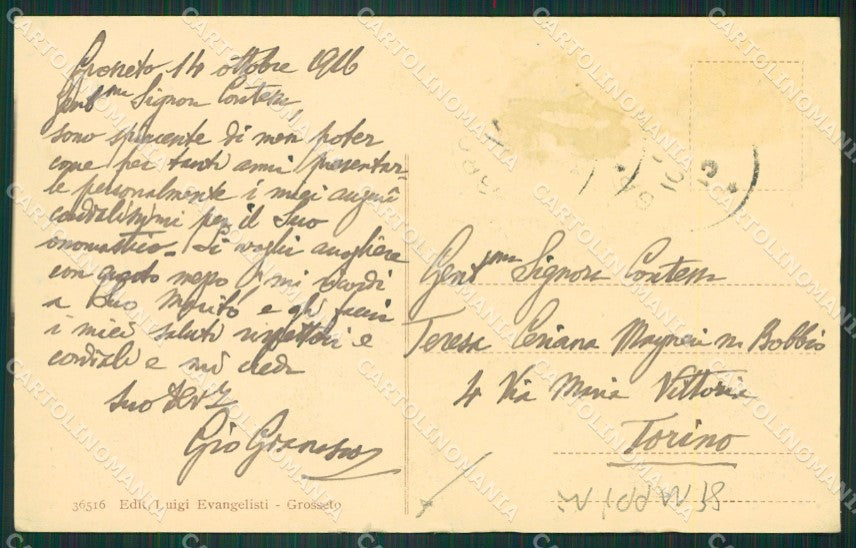 Grosseto 14 ottobre 1916
Gent.ma Signora Contessa,
sono spiacente di non poter
come per tanti anni presentar-
le personalmente i miei auguri
cordialissimi per il Suo
onomastico. Li voglia accogliere
con questo mezzo, mi ricordi
a Suo Marito e gli faccia
i miei saluti rispettosi e
cordiali e mi creda
Suo
Gio
36516 Edit. Luigi Evangelisti - Grosseto
Gent.ma Signora Contessa
Teresa Ceriana Mayneri n. Bobbio
4 Via Maria Vittoria
Torino
CARTOLINOMANIA